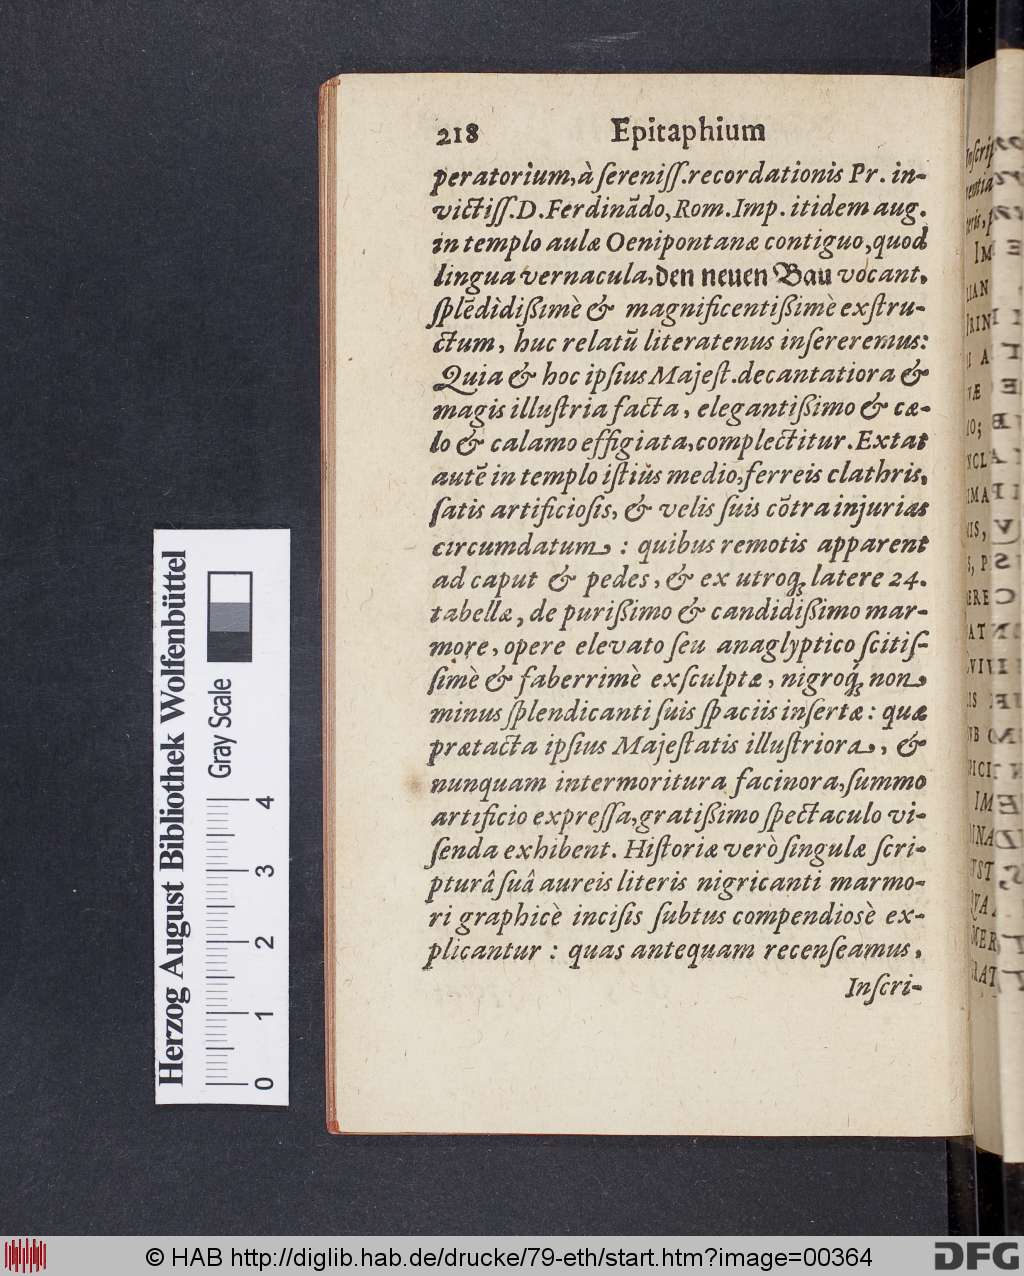 218 Epitaphium
peratorium, à sereniss. recordationis Pr. in-
victiss. D. Ferdinãdo, Rom. Imp. itidem aug.
in templo aulæ Oenipontanæ contiguo, quod
lingua vernacula, den neuen Bau vocant,
splẽdìdißimè & magnificentißimè exstru-
ctum, huc relatũ literatenus insereremus:
Quia & hoc ipsius Majest. decantatiora &
magis illustria facta, elegantißimo & cæ-
lo & calamo effigiata, complectitur. Extat
autẽ in templo istiùs medio, ferreis clathris,
satis artificiosis, & velis suis cõtra injurias
circumdatum : quibus remotis apparent
ad caput & pedes, & ex utroq́; latere 24.
tabellæ, de purißimo & candidißimo mar-
more, opere elevato seu anaglyptico scitis-
simè & faberrimè exsculptæ, nigroq́; non
minus splendicanti suis spaciis insertæ: quæ
prætacta ipsius Majestatis illustriora, &
nunquam intermoritura facinora, summo
artificio expressa, gratißimo spectaculo vi-
senda exhibent. Historiæ verò singulæ scri-
pturâ suâ aureis literis nigricanti marmo-
ri graphicè incisis subtus compendiosè ex-
plicantur : quas antequam recenseamus,
Inscri-
Herzog August Bibliothek Wolfenbüttel
Gray Scale
0 1 2 3 4
© HAB http://diglib.hab.de/drucke/79-eth/start.htm?image=00364
DFG